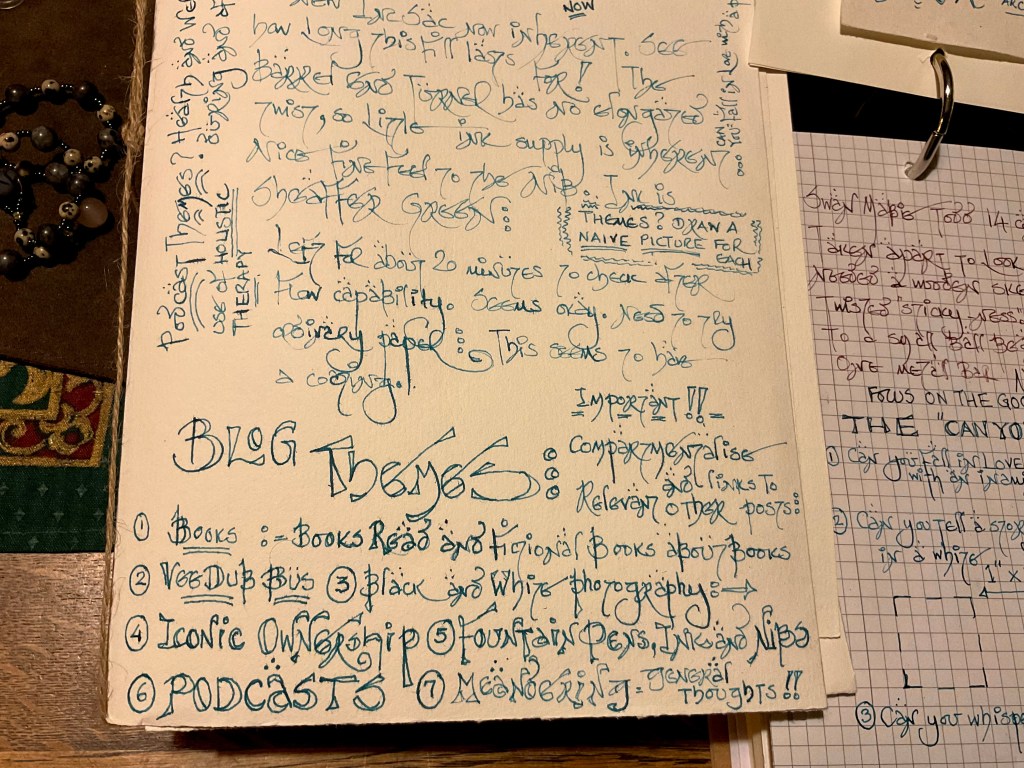 New Ink Sac now inherent. See
NOW
how long this fill lasts for! The
Barrel end Turned has no elongated
twist, so little ink supply is inherent...
Nice fine feel to the nib. Ink is
Sheaffer Green:
THEMES? DRAW A
NAIVE PICTURE FOR
EACH
Left for about 20 minutes to check after
flow capability. Seems okay. Need to try
ordinary paper: This seems to have
a coating.!
Podcast Themes? Health and We
use of HOLISTIC
THERAPY
during and of
CAN
YOU FALL IN LOVE WITH
IMPORTANT!!
BLOG THEMES:
Compartmentalise
and links to
Relevant other posts:
① Books := Books Read and Fictional Books about Books
② VeeDub Bus ③ Black and White photography:→
④ Iconic Ownership ⑤ Fountain Pens, Ink and Nibs
⑥ PODCASTS ⑦ Meandering = general
thoughts!!
Swan Mabie Todd 14 c
Taken apart to look
Needed a wooden
Twisted sticky-ness"
To a small Ball Be
One metal Ball
FOCUS ON THE GOO
THE "CAN YO
① Can you fall in love
with an inan
② Can you tell a stor
in a white
1" x
③ Can you whispe